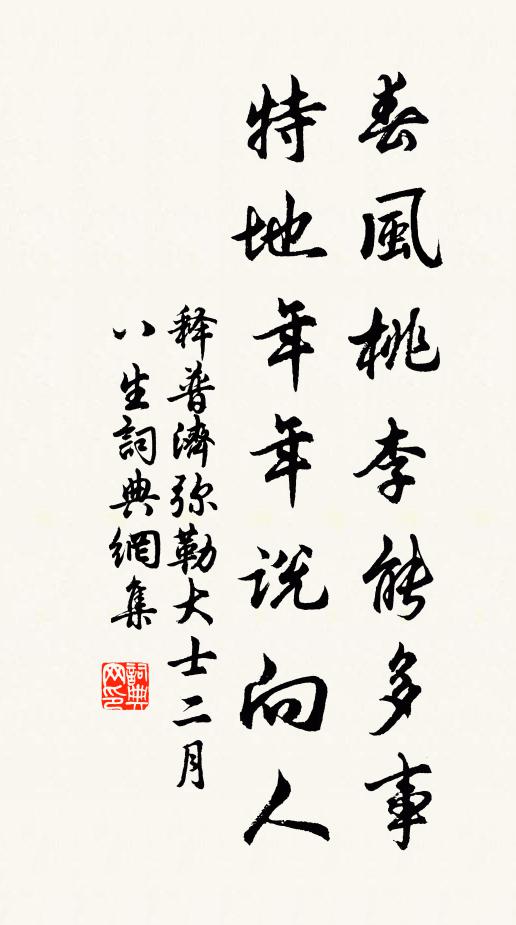 春風桃李能多事
特地年年説向人
释普濟弥勒大士二月
八生詞典網集
詞典网印